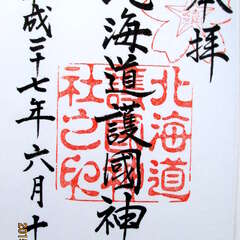 奉拝
北海道護國神
成二十七年六月十
北海道
護國神
社之印